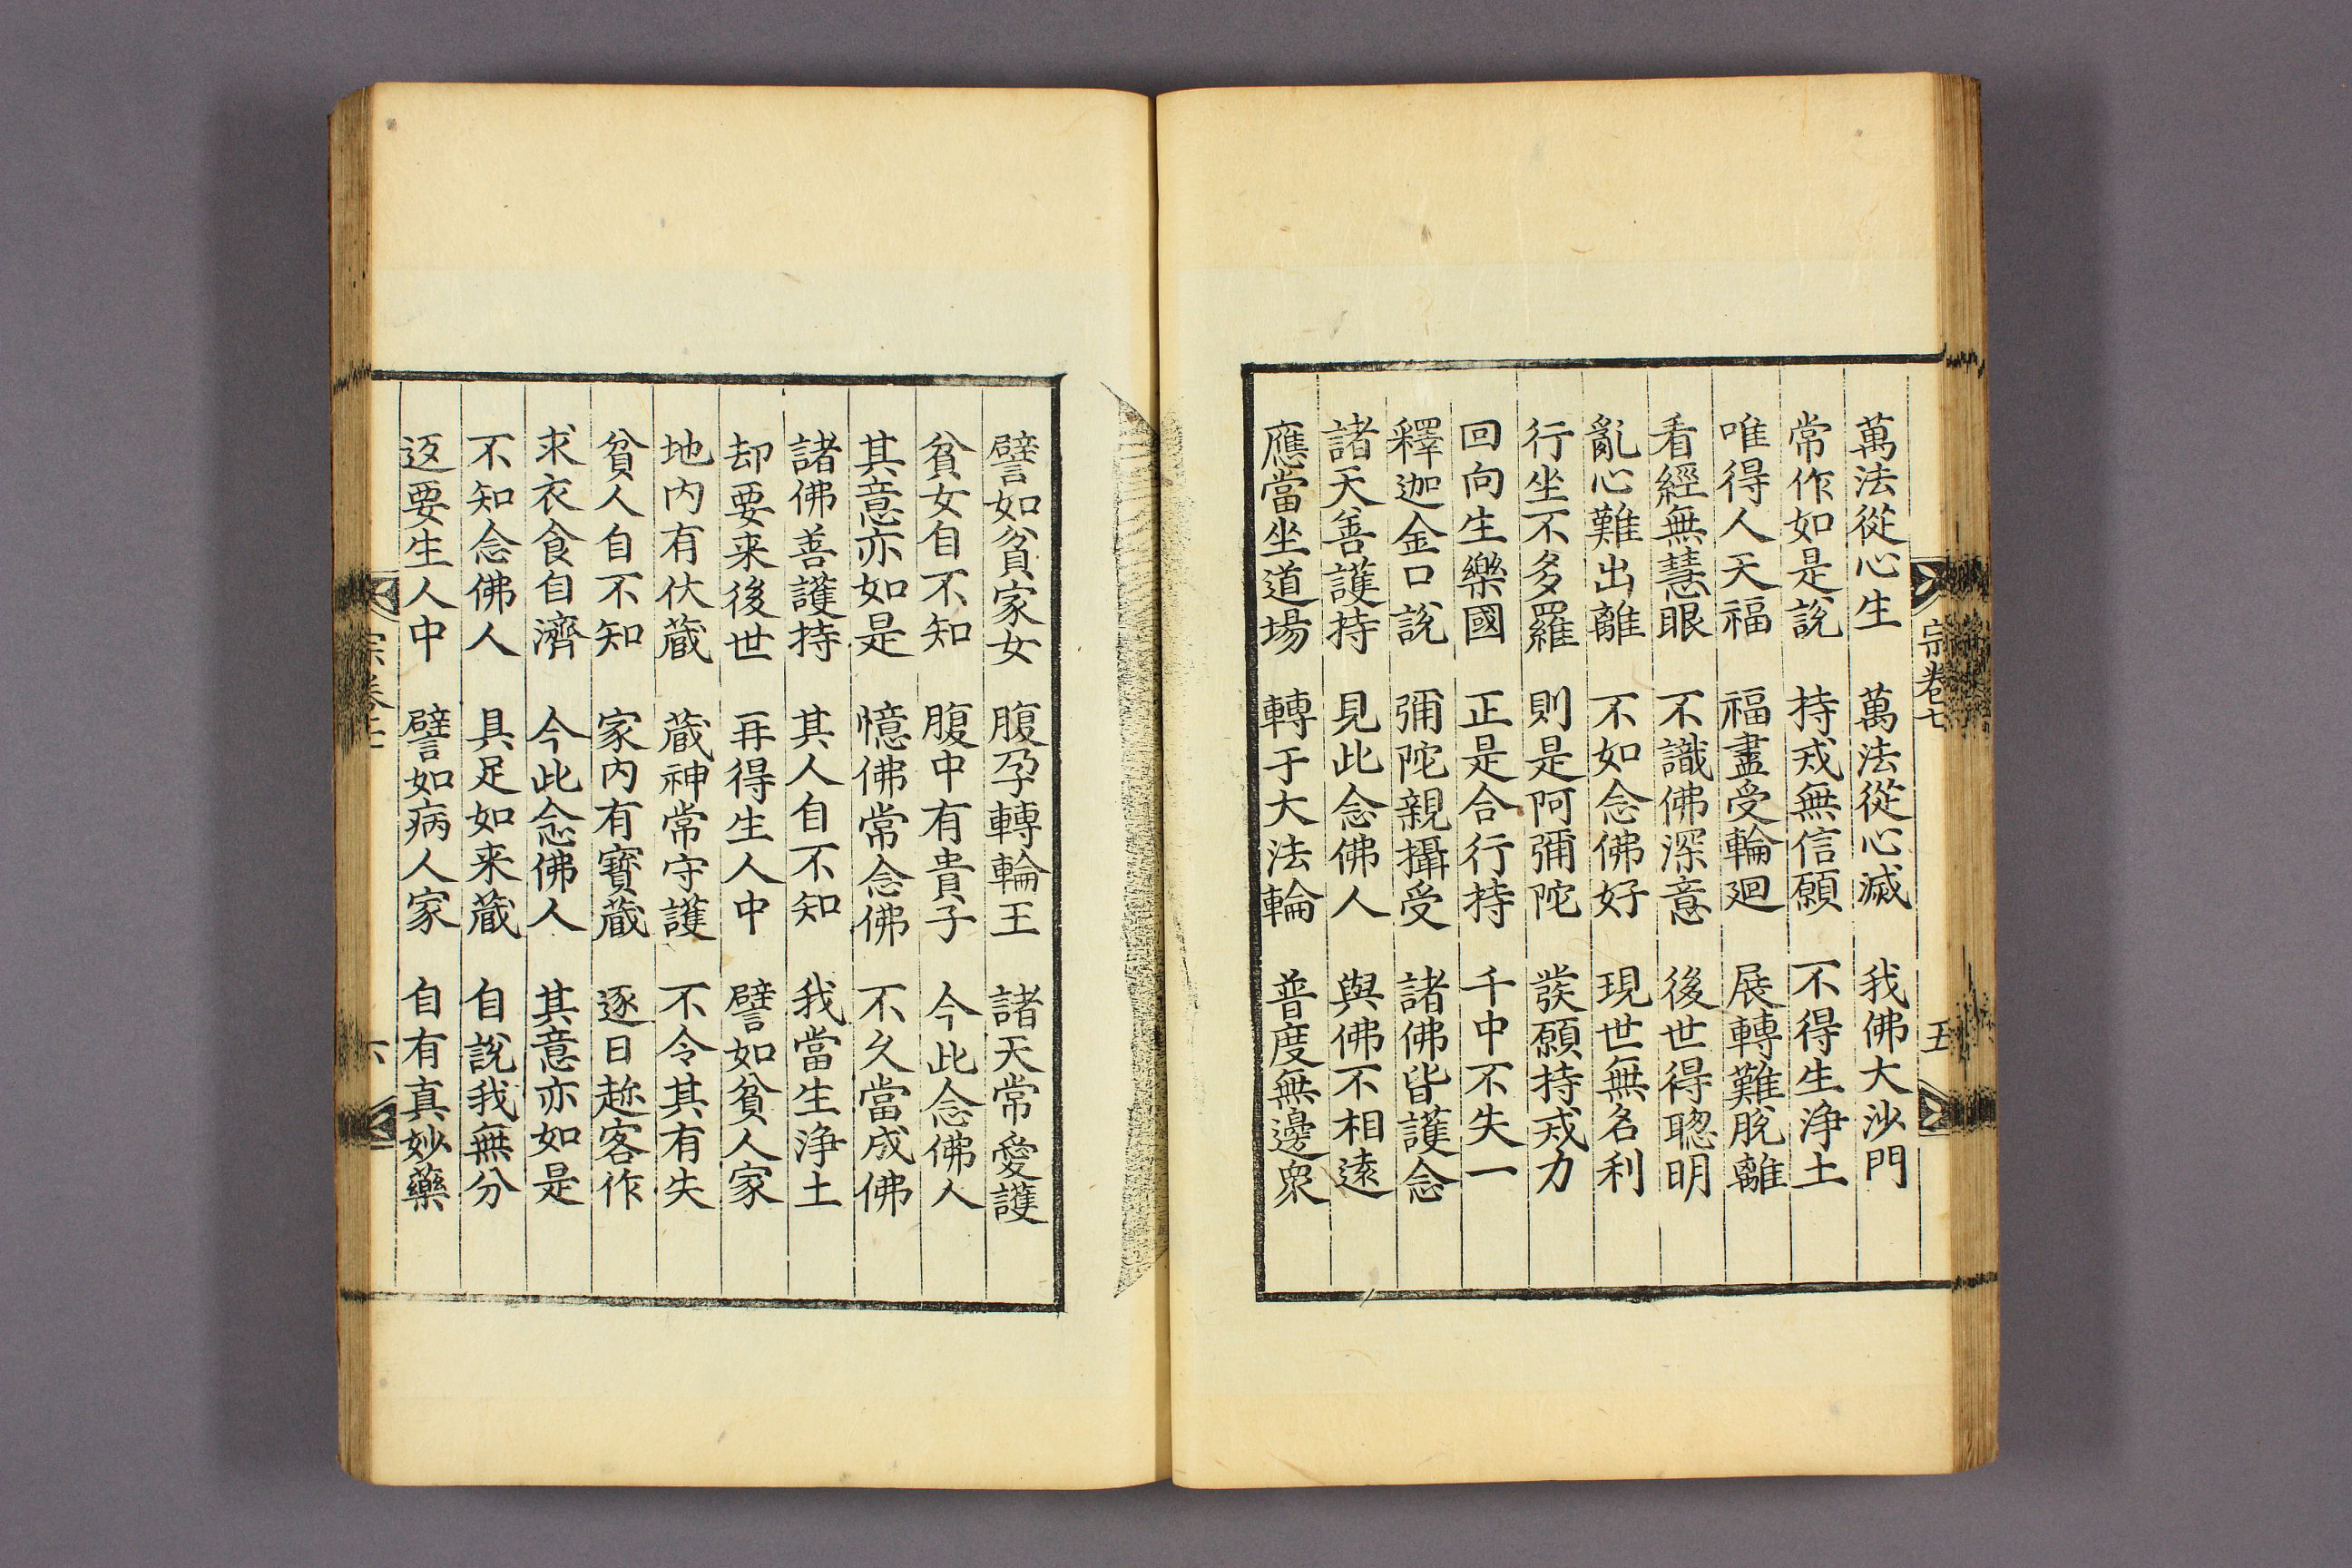 宗卷七
五
萬法從心生 萬法從心滅 我佛大沙門
常作如是說 持戒無信願 不得生淨土
唯得人天福 福盡受輪廻 展轉難脫離
看經無慧眼 不識佛深意 後世得聰明
亂心難出離 不如念佛好 現世無名利
行坐不多羅 則是阿彌陀 發願持戒力
回向生樂國 正是合行持 千中不失一
釋迦金口說 彌陀親攝受 諸佛皆護念
諸天善護持 見此念佛人 與佛不相遠
應當坐道場 轉于大法輪 普度無邊衆
譬如貧家女 腹孕轉輪王 諸天常愛護
貧女自不知 腹中有貴子 今此念佛人
其意亦如是 憶佛常念佛 不久當成佛
諸佛善護持 其人自不知 我當生淨土
却要来後世 再得生人中 譬如貧人家
地内有伏藏 藏神常守護 不令其有失
貧人自不知 家内有寶藏 逐日趂客作
求衣食自濟 今此念佛人 其意亦如是
不知念佛人 具足如来藏 自說我無分
返要生人中 譬如病人家 自有真妙藥